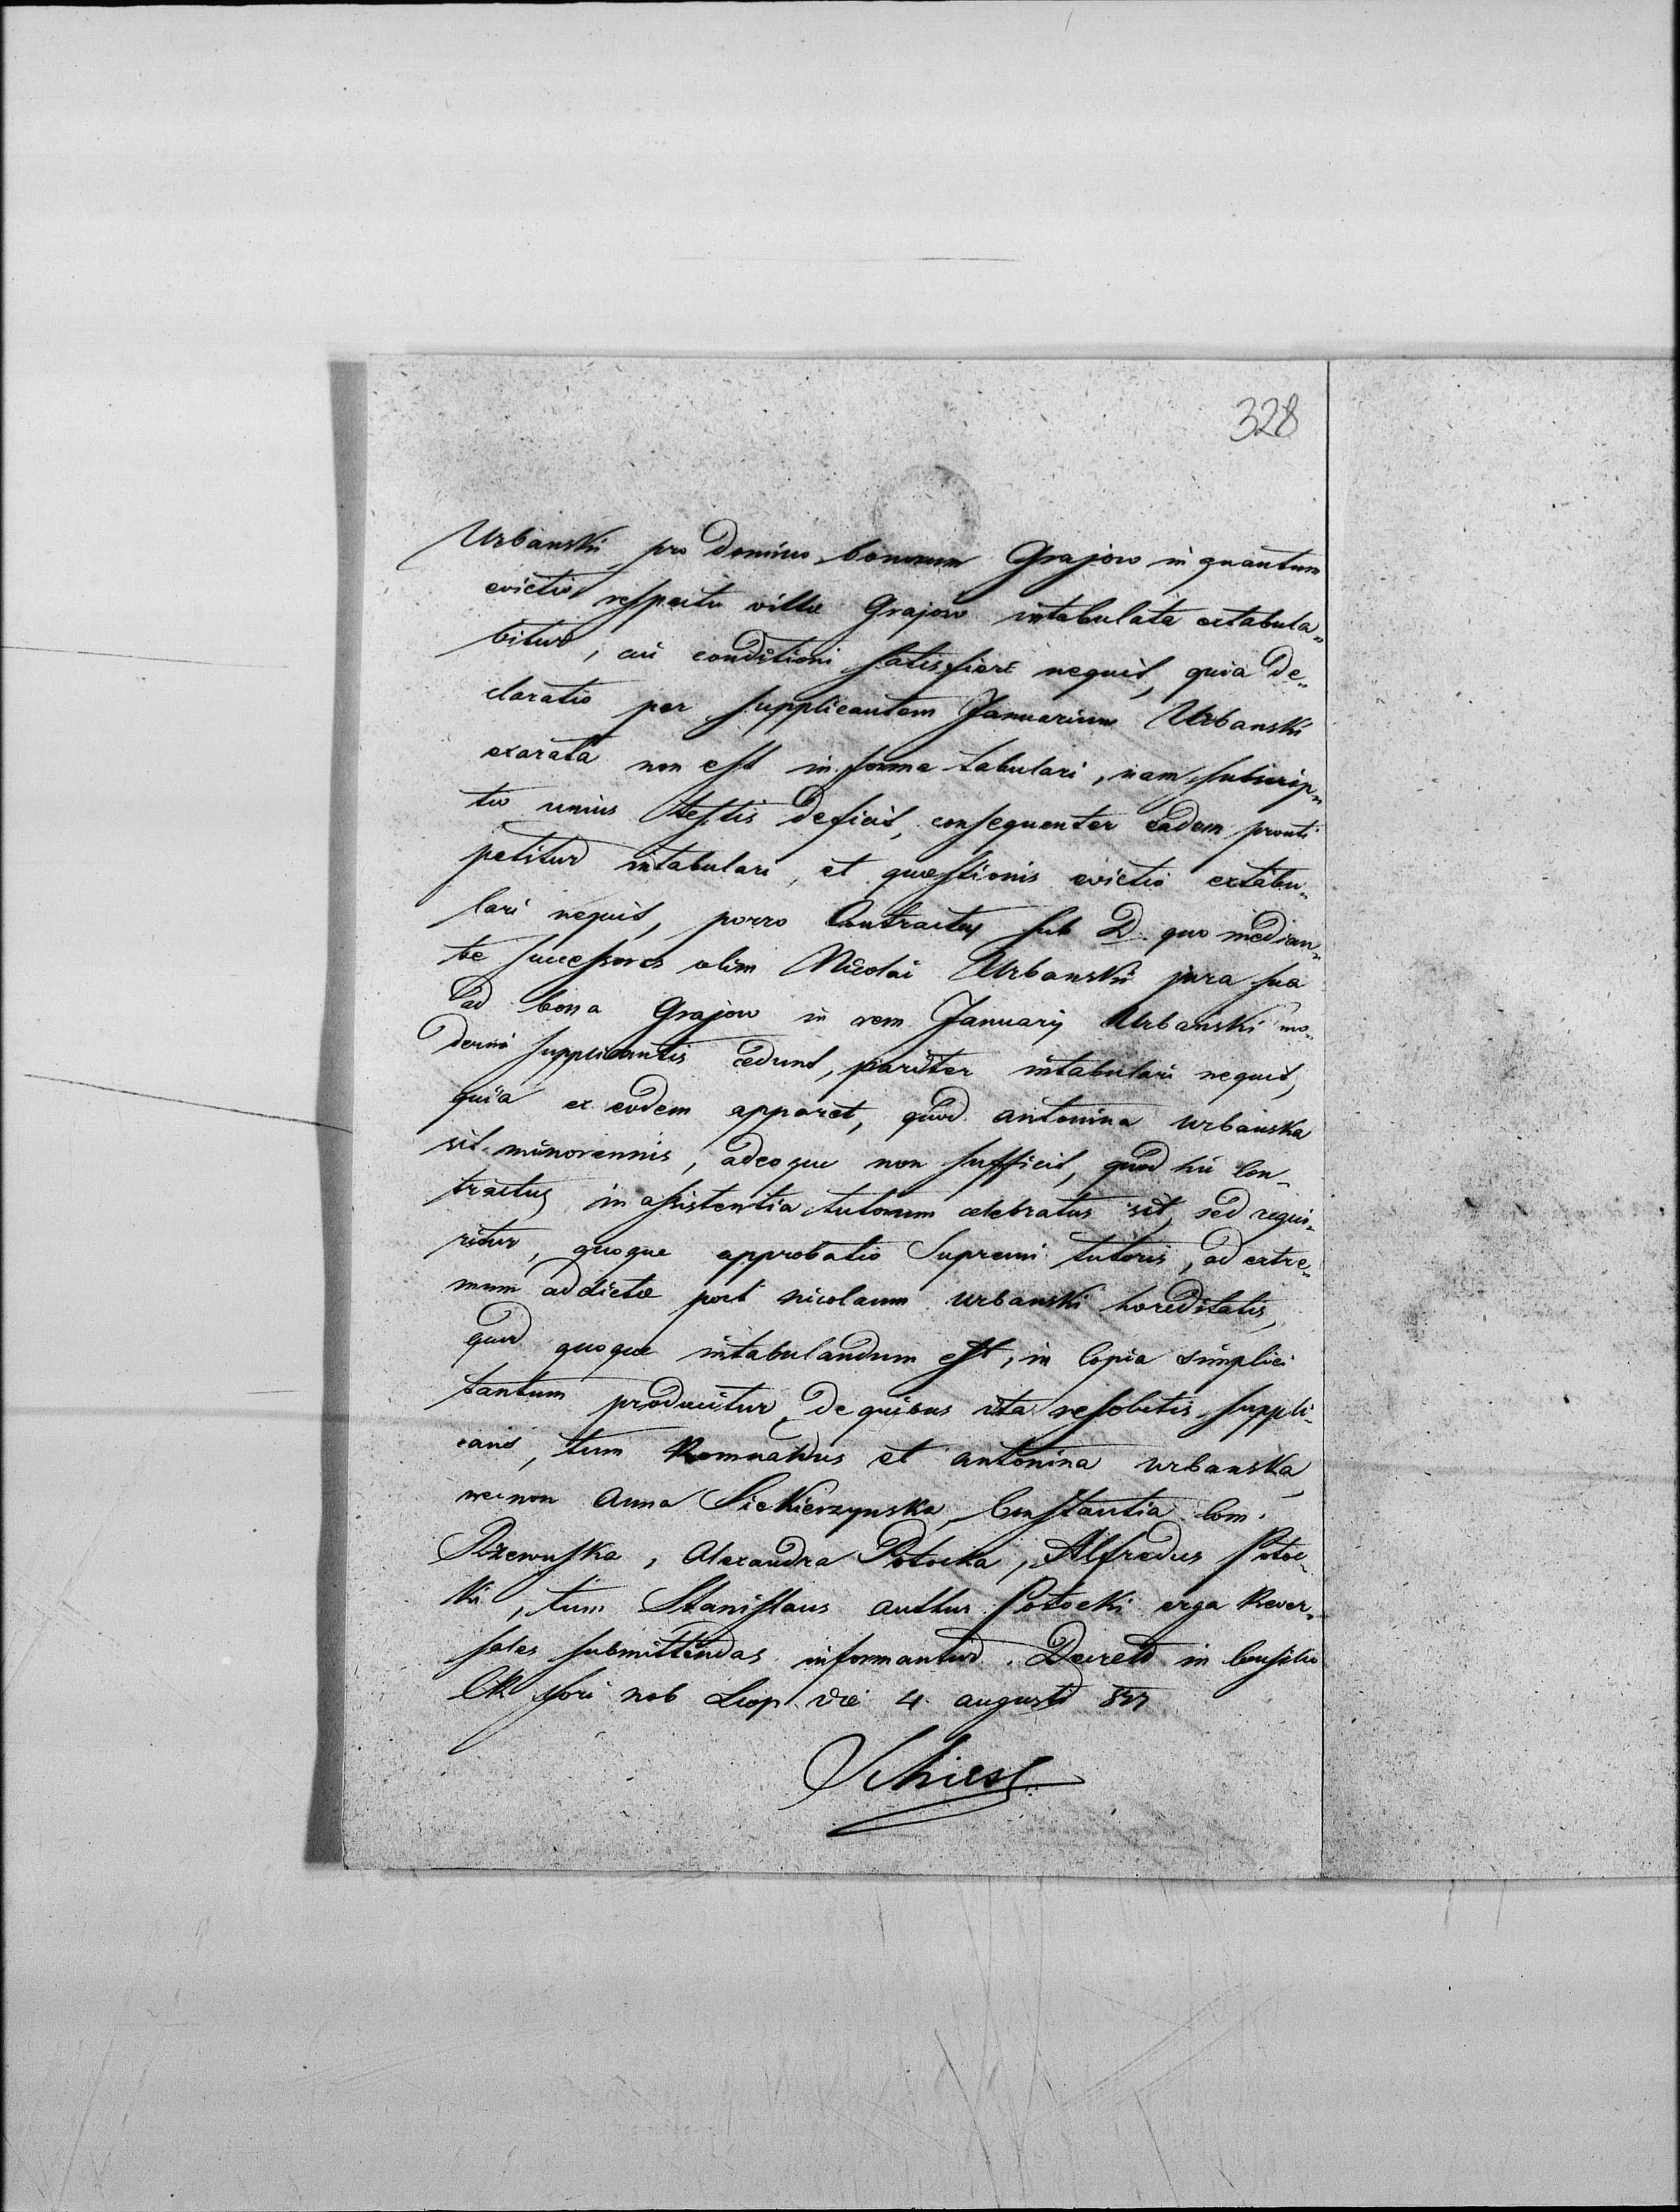 328
Urbanski pro domino bonorum Grajow in quantum
evictio respectu villæ Grajow intabulata extabula„
bitur, cui conditioni satisfieri nequit, quia de„
claratio per supplicantem Januarium Urbanski
exarata non est in forma tabulari, nam subscrip„
tio unius testis deficit, consequenter eadem prout
petitur intabulari, et quæstionis evictio extabu„
lari nequit, porro Contractus sub D. quo median„
te successores olim Nicolai Urbanski jura sua
ad bona Grajow in rem Januarij Urbanski mo„
derni supplicantis cedunt, pariter intabulari nequit,
quia ex eodem apparet, quod antonina Urbanska
sit minorennis, adeoque non sufficit, quod hic Con„
tractus in assistentia tutorum celebratus sit, sed requi„
ritur, quoque approbatio Supremi tutoris, ad extre„
mum addictæ post Nicolaum Urbanski hæreditatis,
quod quoque intabulandum est, in Copia simplici
tantum producitur, de quibus ita resolutis suppli„
cans, tum Romualdus et antonina Urbanska,
necnon Anna Siekierzynska, Constantia Com.
Rzewuska, Alexandra Potocka, Alfredus Potoc„
ki, tum Stanislaus arthur Potocki erga Rever„
sales submittendas informantur. Decreto in Consilio
CR fori nob Leop. die 4 augusti 827
Schiesl